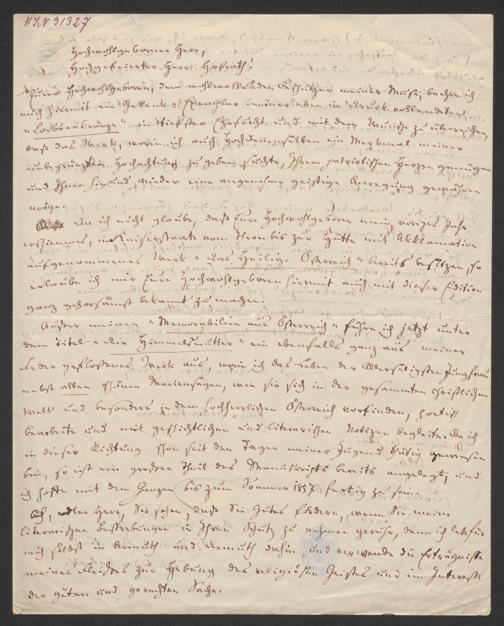 H.I.N. 31327
Hochwohlgeborner Herr,
Hochgefeierter Herr Hofrath!
Euer Hochwohlgeboren, dem wohlwollenden Beschützer meiner Muse, beehre ich
mich hiermit ein Exemplar meiner eben im Drucke vollendeten
„Lorbeerkränze“ in tiefster Ehrfurcht und mit dem Wunsche zu überreichen,
daß das Werk, worin ich auch Hochdenenselben ein Merkmal meiner
unbegrenzten Hochachtung zu geben suchte, Ihrem patriotischen Herzen genügen
und Ihnen hie und wieder eine angenehme geistige Anregung gewähren
möge.
Da ich nicht glaube, daß Eure Hochwohlgeboren mein voriges Jahr
erschienenes, im Kaiserstaate vom Thron bis zur Hütte mit Akklamation
aufgenommenes Werk „Das Heilige Österreich“ bereits besitzen, so
erlaube ich mir Eure Hochwohlgeboren hiermit auch mit dieser Edition
ganz gehorsamst bekannt zu machen.
Außer meinen „Memorabilien aus Österreich“ führe ich jetzt unter
dem Titel „Die Himmelsmutter“ ein ebenfalls ganz aus meiner
Feder geflossenes Werk aus, worin ich das Leben der Allerseligsten Jungfrau
nebst allen schönen Mariensagen, wie sie sich in der gesammten christlichen
Welt und besonders in dem hochherrlichen Österreich vorfinden, poetisch
bearbeite und mit geschichtlichen und literarischen Notizen begleite. Da ich
in dieser Richtung schon seit den Tagen meiner Jugend thätig gewesen
bin, so ist ein großer Theil des Manuskripts bereits angelegt, und
ich hoffe mit dem Ganzen bis zum Sommer 1857 fertig zu sein.
Ach, edler Herr, Sie sehen, daß Sie Gutes fördern, wenn Sie meine
literarischen Bestrebungen in Ihren Schutz zu nehmen geruhen, denn ich lebe für
mich selbst in Armuth und Demuth dahin, und verwende die Erträgnisse
meines Fleißes zur Hebung des religiösen Geistes und im Interesse
der guten und gerechten Sache.